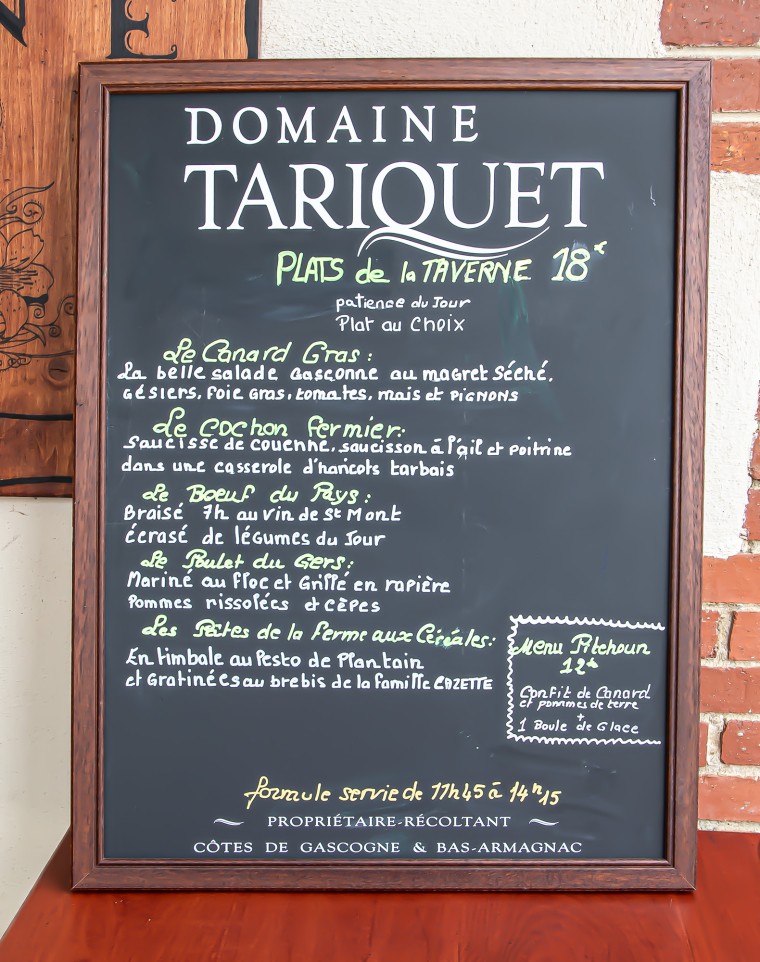 DOMAINE
TARIQUET
PLATS de la TAVERNE 18€
patience du Jour
Plat au Choix
Le Canard Gras :
La belle salade Gasconne au magret Séché,
Gésiers, Foie Gras, tomates, maïs et PIGNONS
Le Cochon Fermier:
Saucisse de couenne, saucisson à l'ail et poitrine
dans une casserole d'haricots tarbais
Le Boeuf du Pays :
Braisé 7h au vin de St Mont
écrasé de légumes du Jour
Le Poulet du Gers :
Mariné au Floc et Grillé en rapière
Pommes rissolées et cèpes
Les Pâtes de la ferme aux Céréales :
En timbale au Pesto de Plantain
et Gratinées au brebis de la famille CAZETTE
Menu Pitchoun
12€
Confit de Canard
et pommes de terre
+
1 Boule de Glace
formule servie de 11h45 à 14h15
~ PROPRIÉTAIRE-RÉCOLTANT ~
CÔTES DE GASCOGNE & BAS-ARMAGNAC